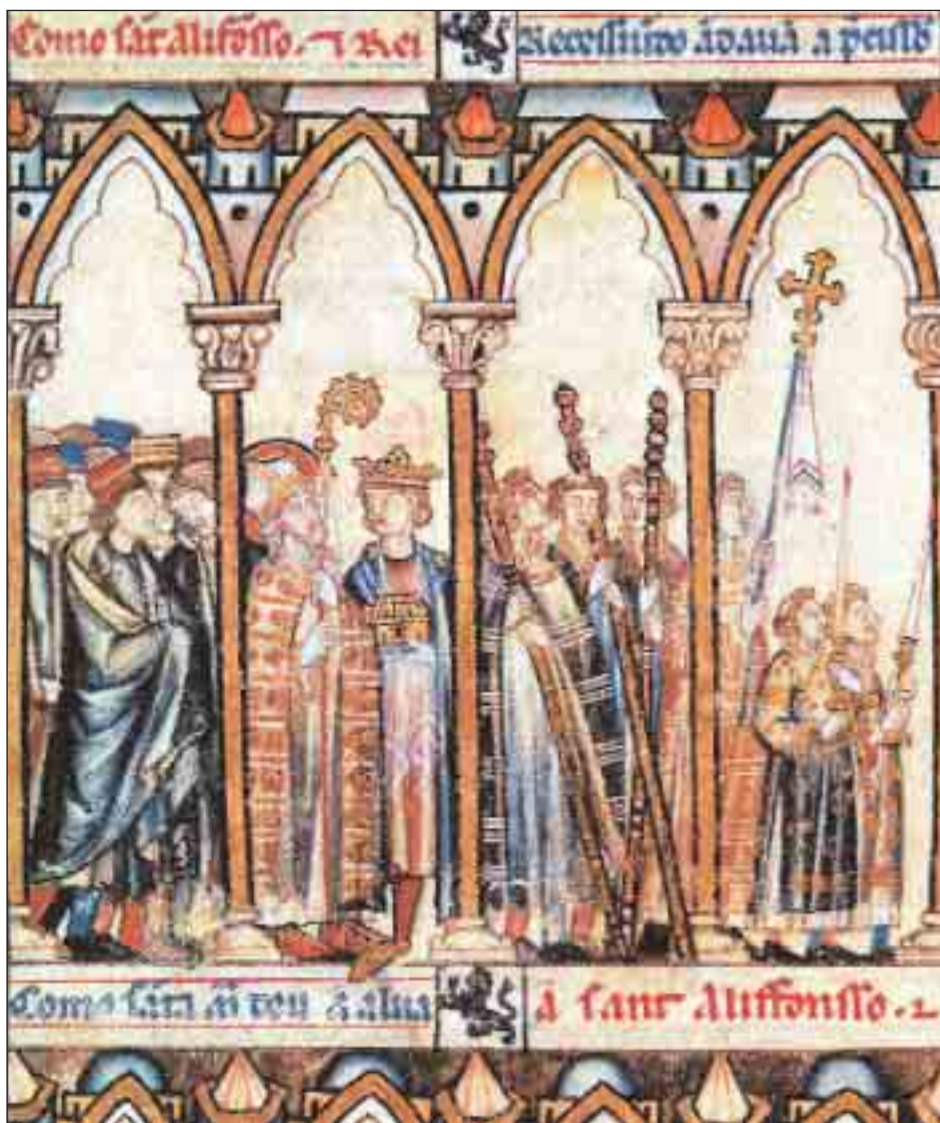 Como sãt alifõsso. ⁊ Rei Recessiuĩto ãdauã a p̃cissõ
Como sãta m̃ deu a alua a sant aliffonsso. ⁊